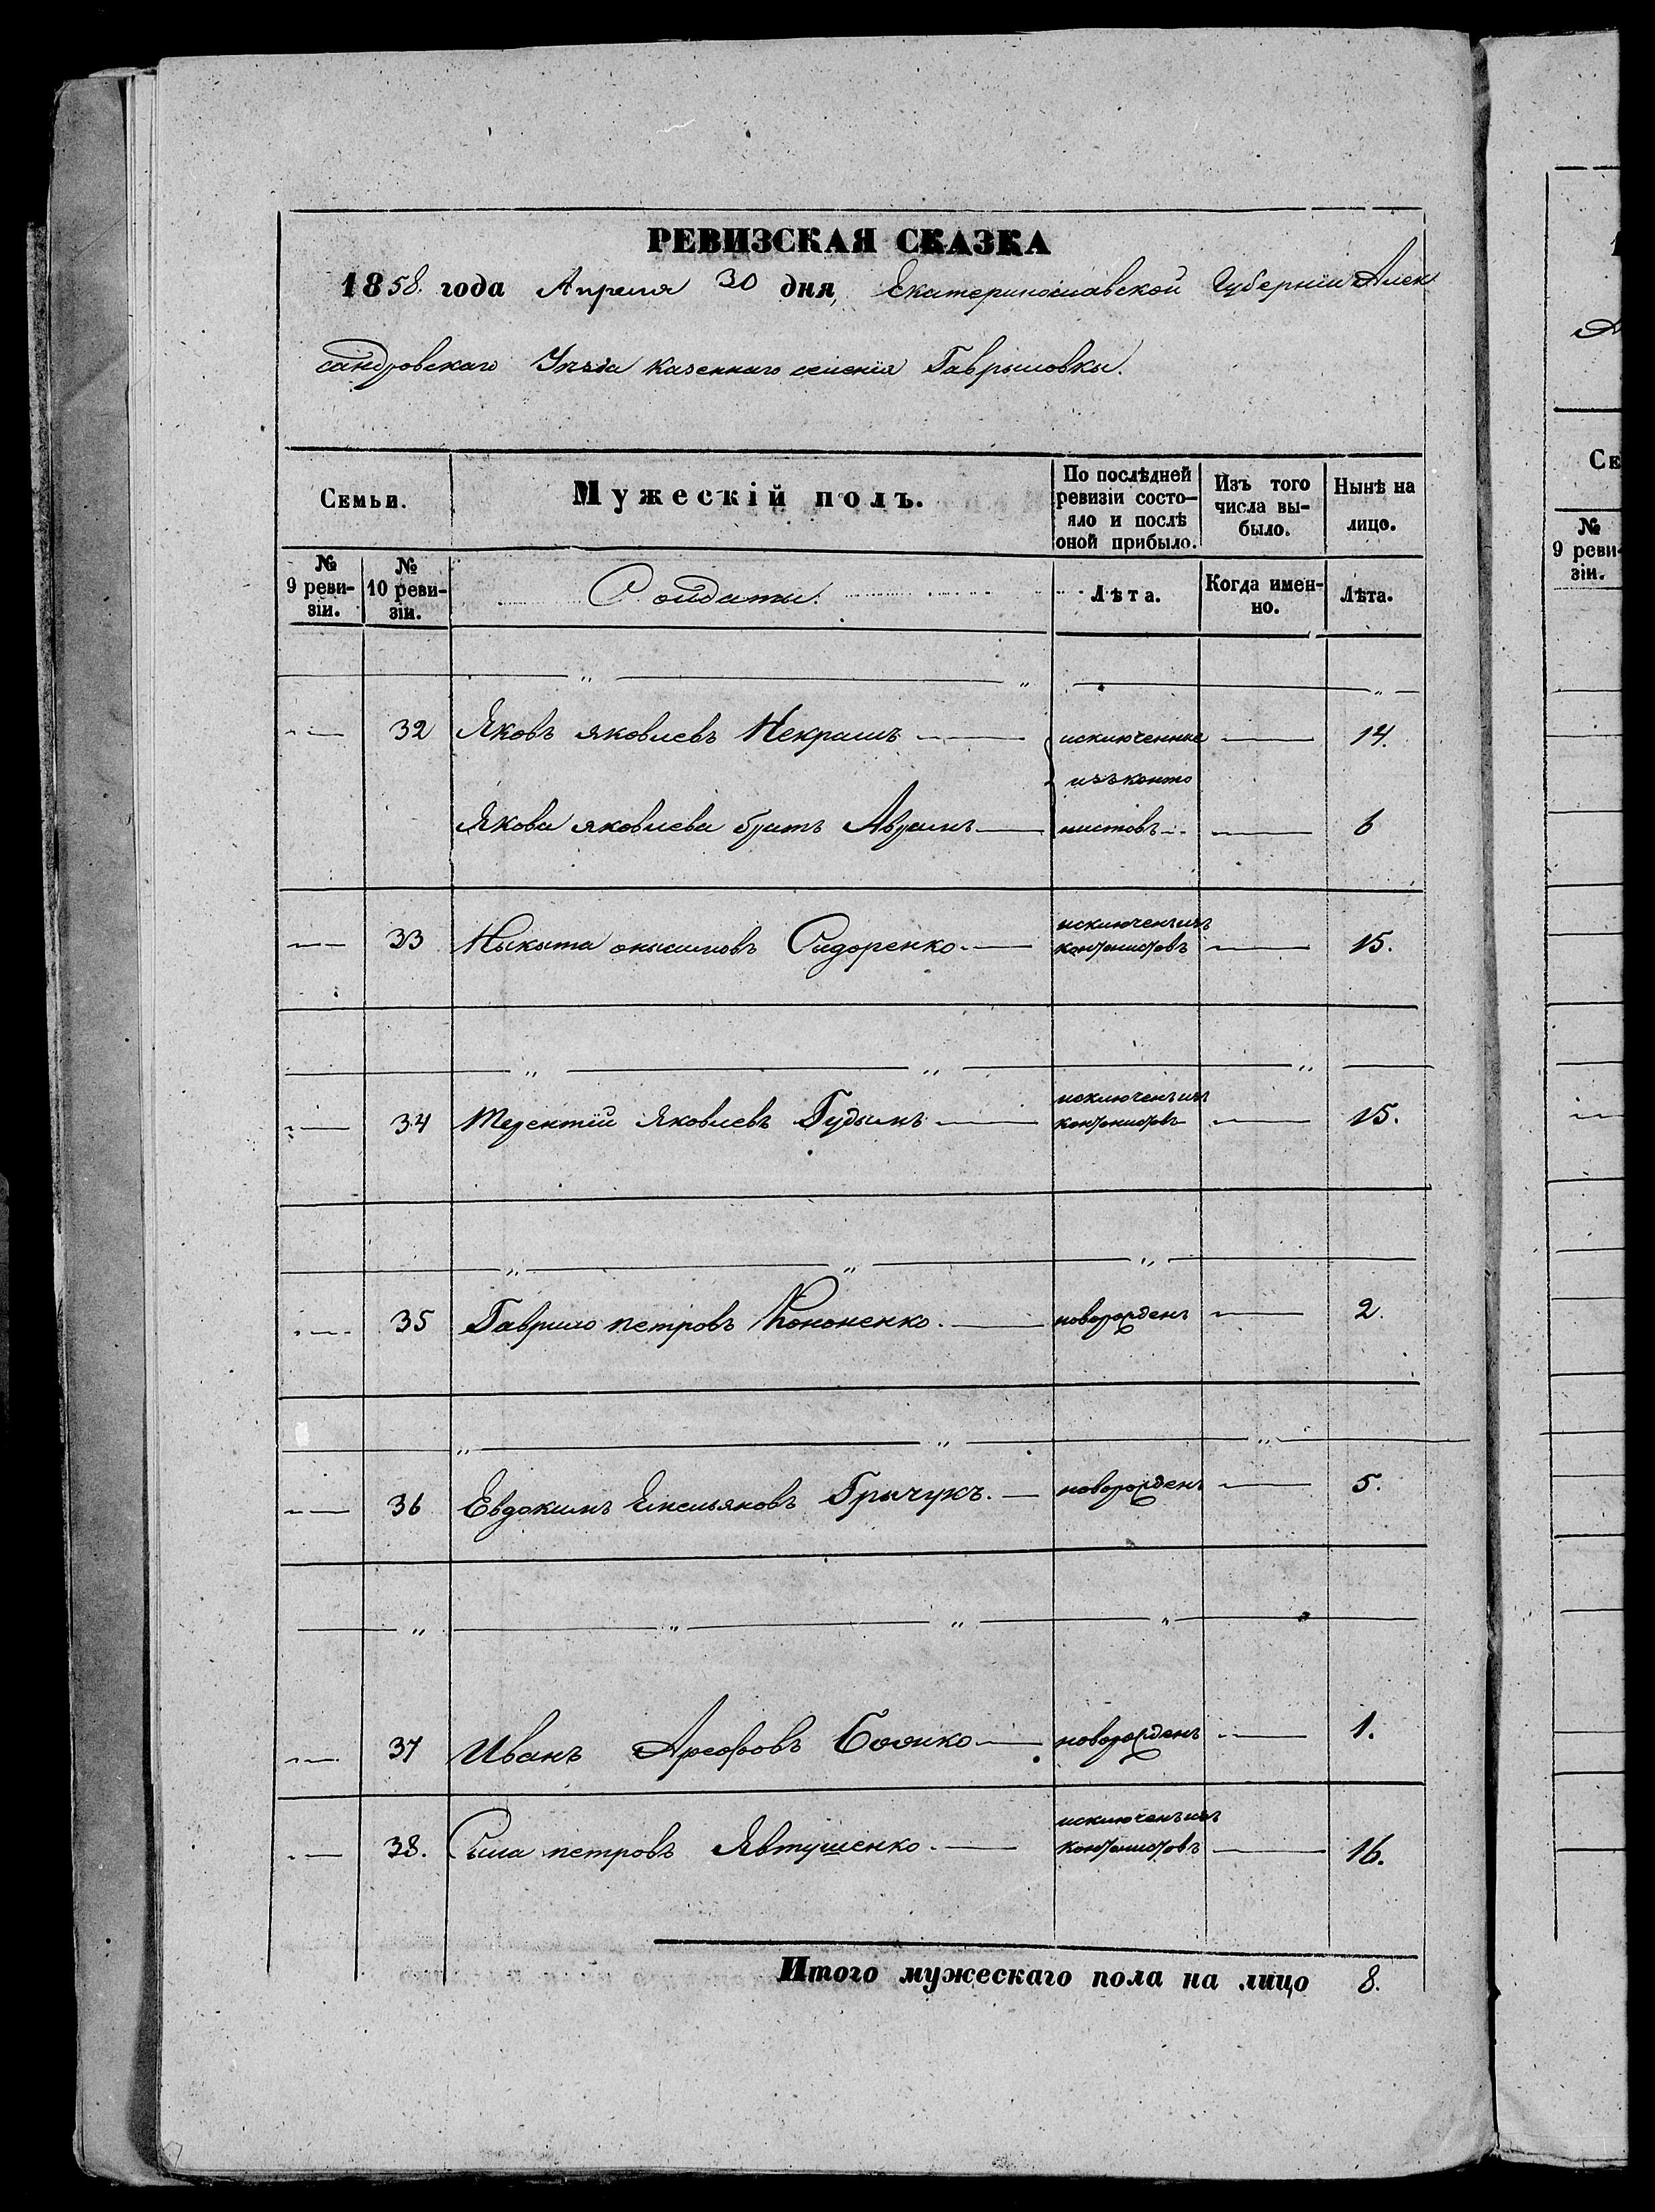 РЕВИЗСКАЯ СКАЗКА
1858. года Апреля 30 дня, Екатеринославской Губерніи Алек
сандровскаго Уезда казеннаго селенія Гаврыловкы.
Семьи.
Мужескій полъ.
По послѣдней ревизіи состо-
яло и послѣ
оной прибыло.
Изъ того числа вы-
было.
Нынѣ на
лицо.
№
9 реви-
зіи.
№
10 реви-
зіи.
Солдаты.
Лѣта.
Когда имен-
но.
Лѣта.
32 Яковъ яковлевъ Некрашъ исключенные 14.
изъ канто
Якова яковлева братъ Аврамъ нистовъ 6
33 Ныкыта онысимовъ Сидоренко исключенъ изъ
кантонистовъ 15.
34 Терентій Яковлевъ Гудымъ исключенъ изъ
кантонистовъ 15.
35 Гаврыло петровъ Кононенко новорожденъ 2.
36 Евдокимъ Емельяновъ Грычукъ. новорожденъ 5.
37 Иванъ Бояко новорожденъ 1.
38. Сыла петровъ Явтушенко исключенъ изъ
кантонистовъ 16.
Итого мужескаго пола на лицо 8.
Се
№
9 реви-
зіи.